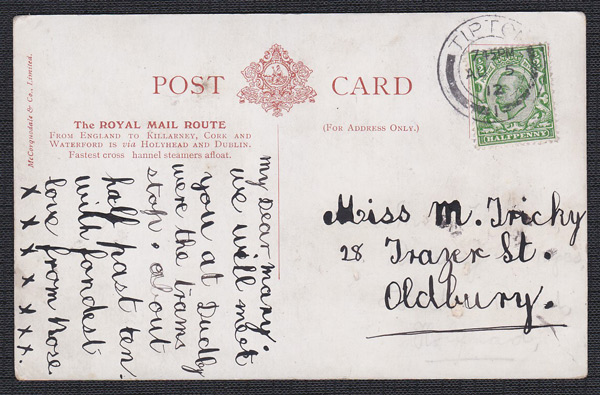 McCorquodale & Co., Limited.
POST CARD
The ROYAL MAIL ROUTE
FROM ENGLAND TO KILLARNEY, CORK AND
WATERFORD IS via HOLYHEAD AND DUBLIN.
Fastest cross hannel steamers afloat.
(FOR ADDRESS ONLY.)
TIPTON
HALFPENNY
My dear mary.
we will meet
you at Dudley
were the trams
stop. about
half past ten.
with fondest
love from Rose
x x x x x x x
Miss M. Tricky
28 Frazer St.
Oldbury.